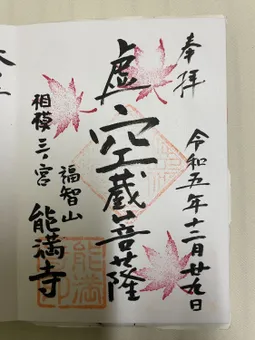 奉拝
令和五年十二月廿九日
虚空蔵菩薩
福智山
相模三ノ宮
能満寺
能満
寺印